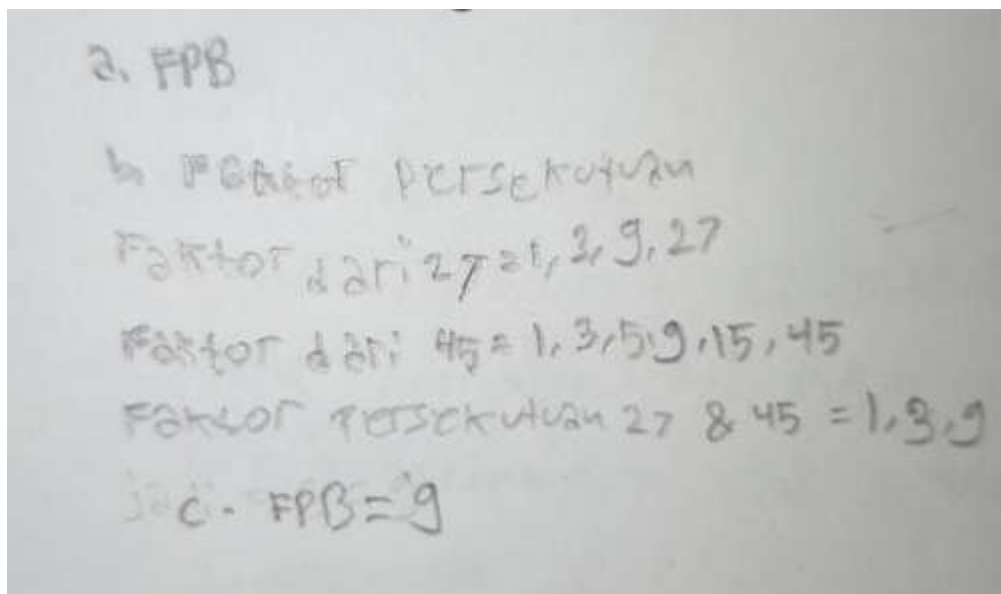 a. FPB
b Faktor persekutuan
Faktor dari 27 = 1, 3, 9, 27
Faktor dari 45 = 1, 3, 5, 9, 15, 45
Faktor Persekutuan 27 & 45 = 1, 3, 9
c. FPB = 9